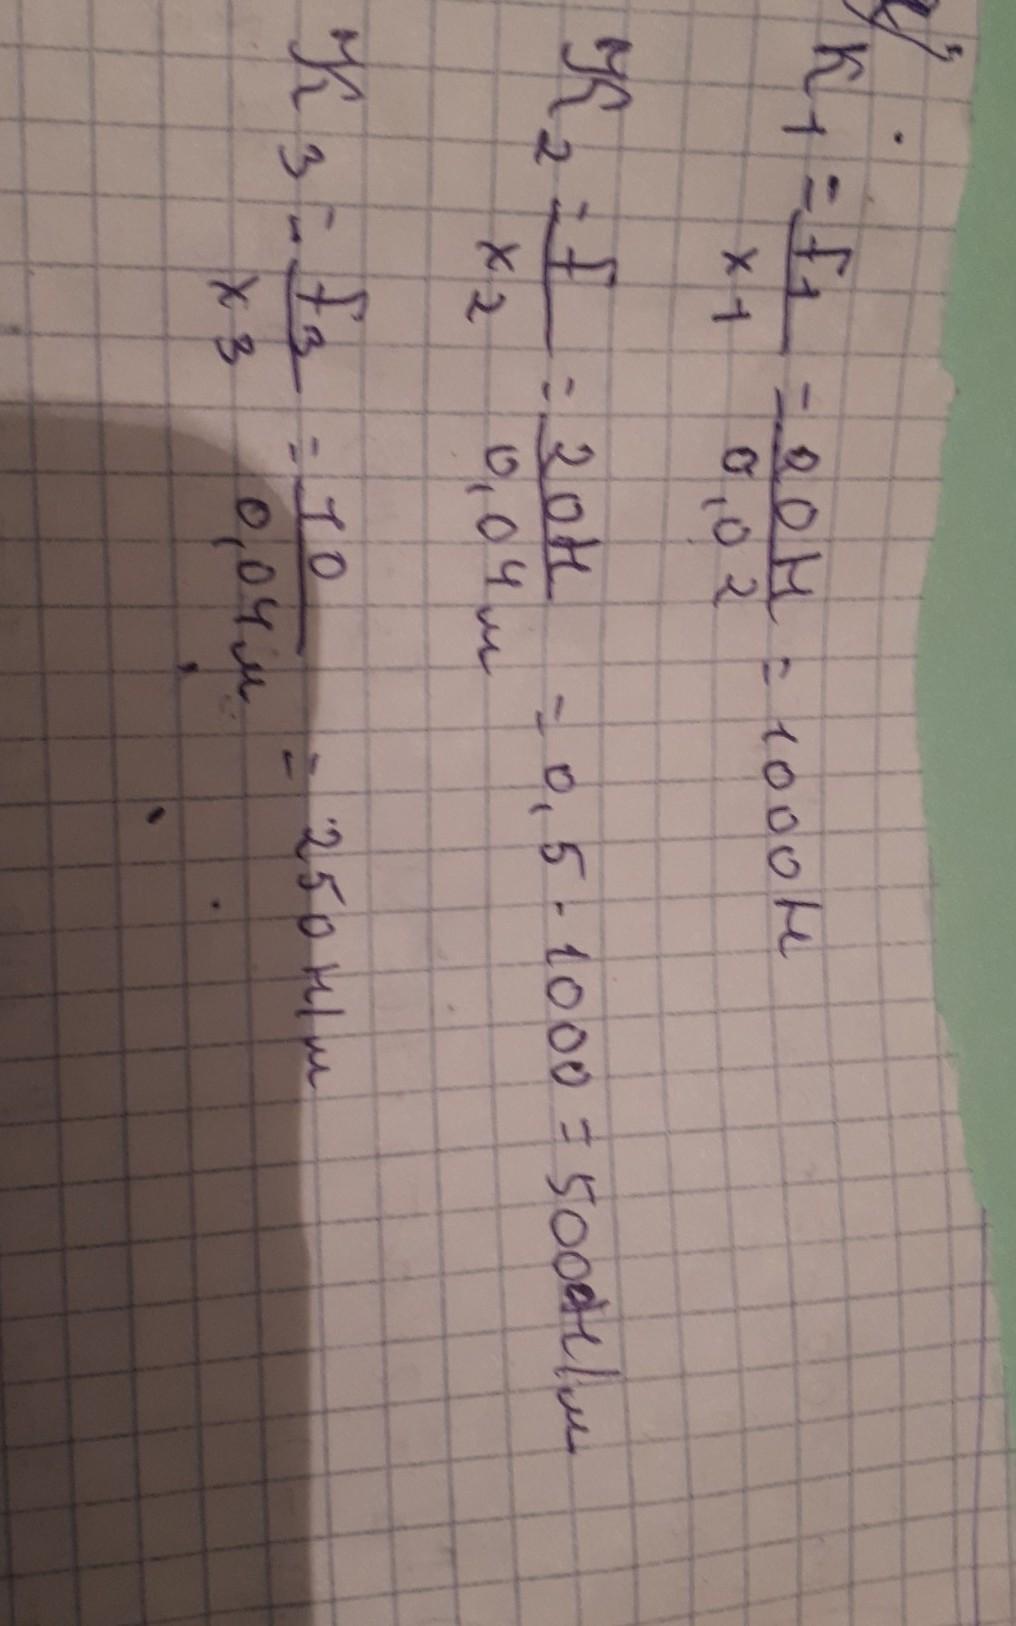 К1 = f1/x1 = 20Н/0,02 = 1000Н
К2 = f/x2 = 20Н/0,04м = 0,5·1000 = 500Н/м
К3 = f3/x3 = 10/0,04м = 250Н/м